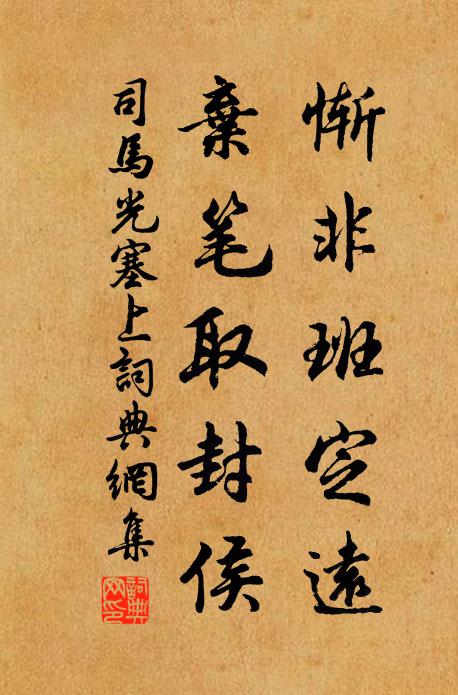 惭非班定遠
棄笔取封侯
司馬光塞上詞典網集
詞典
网印